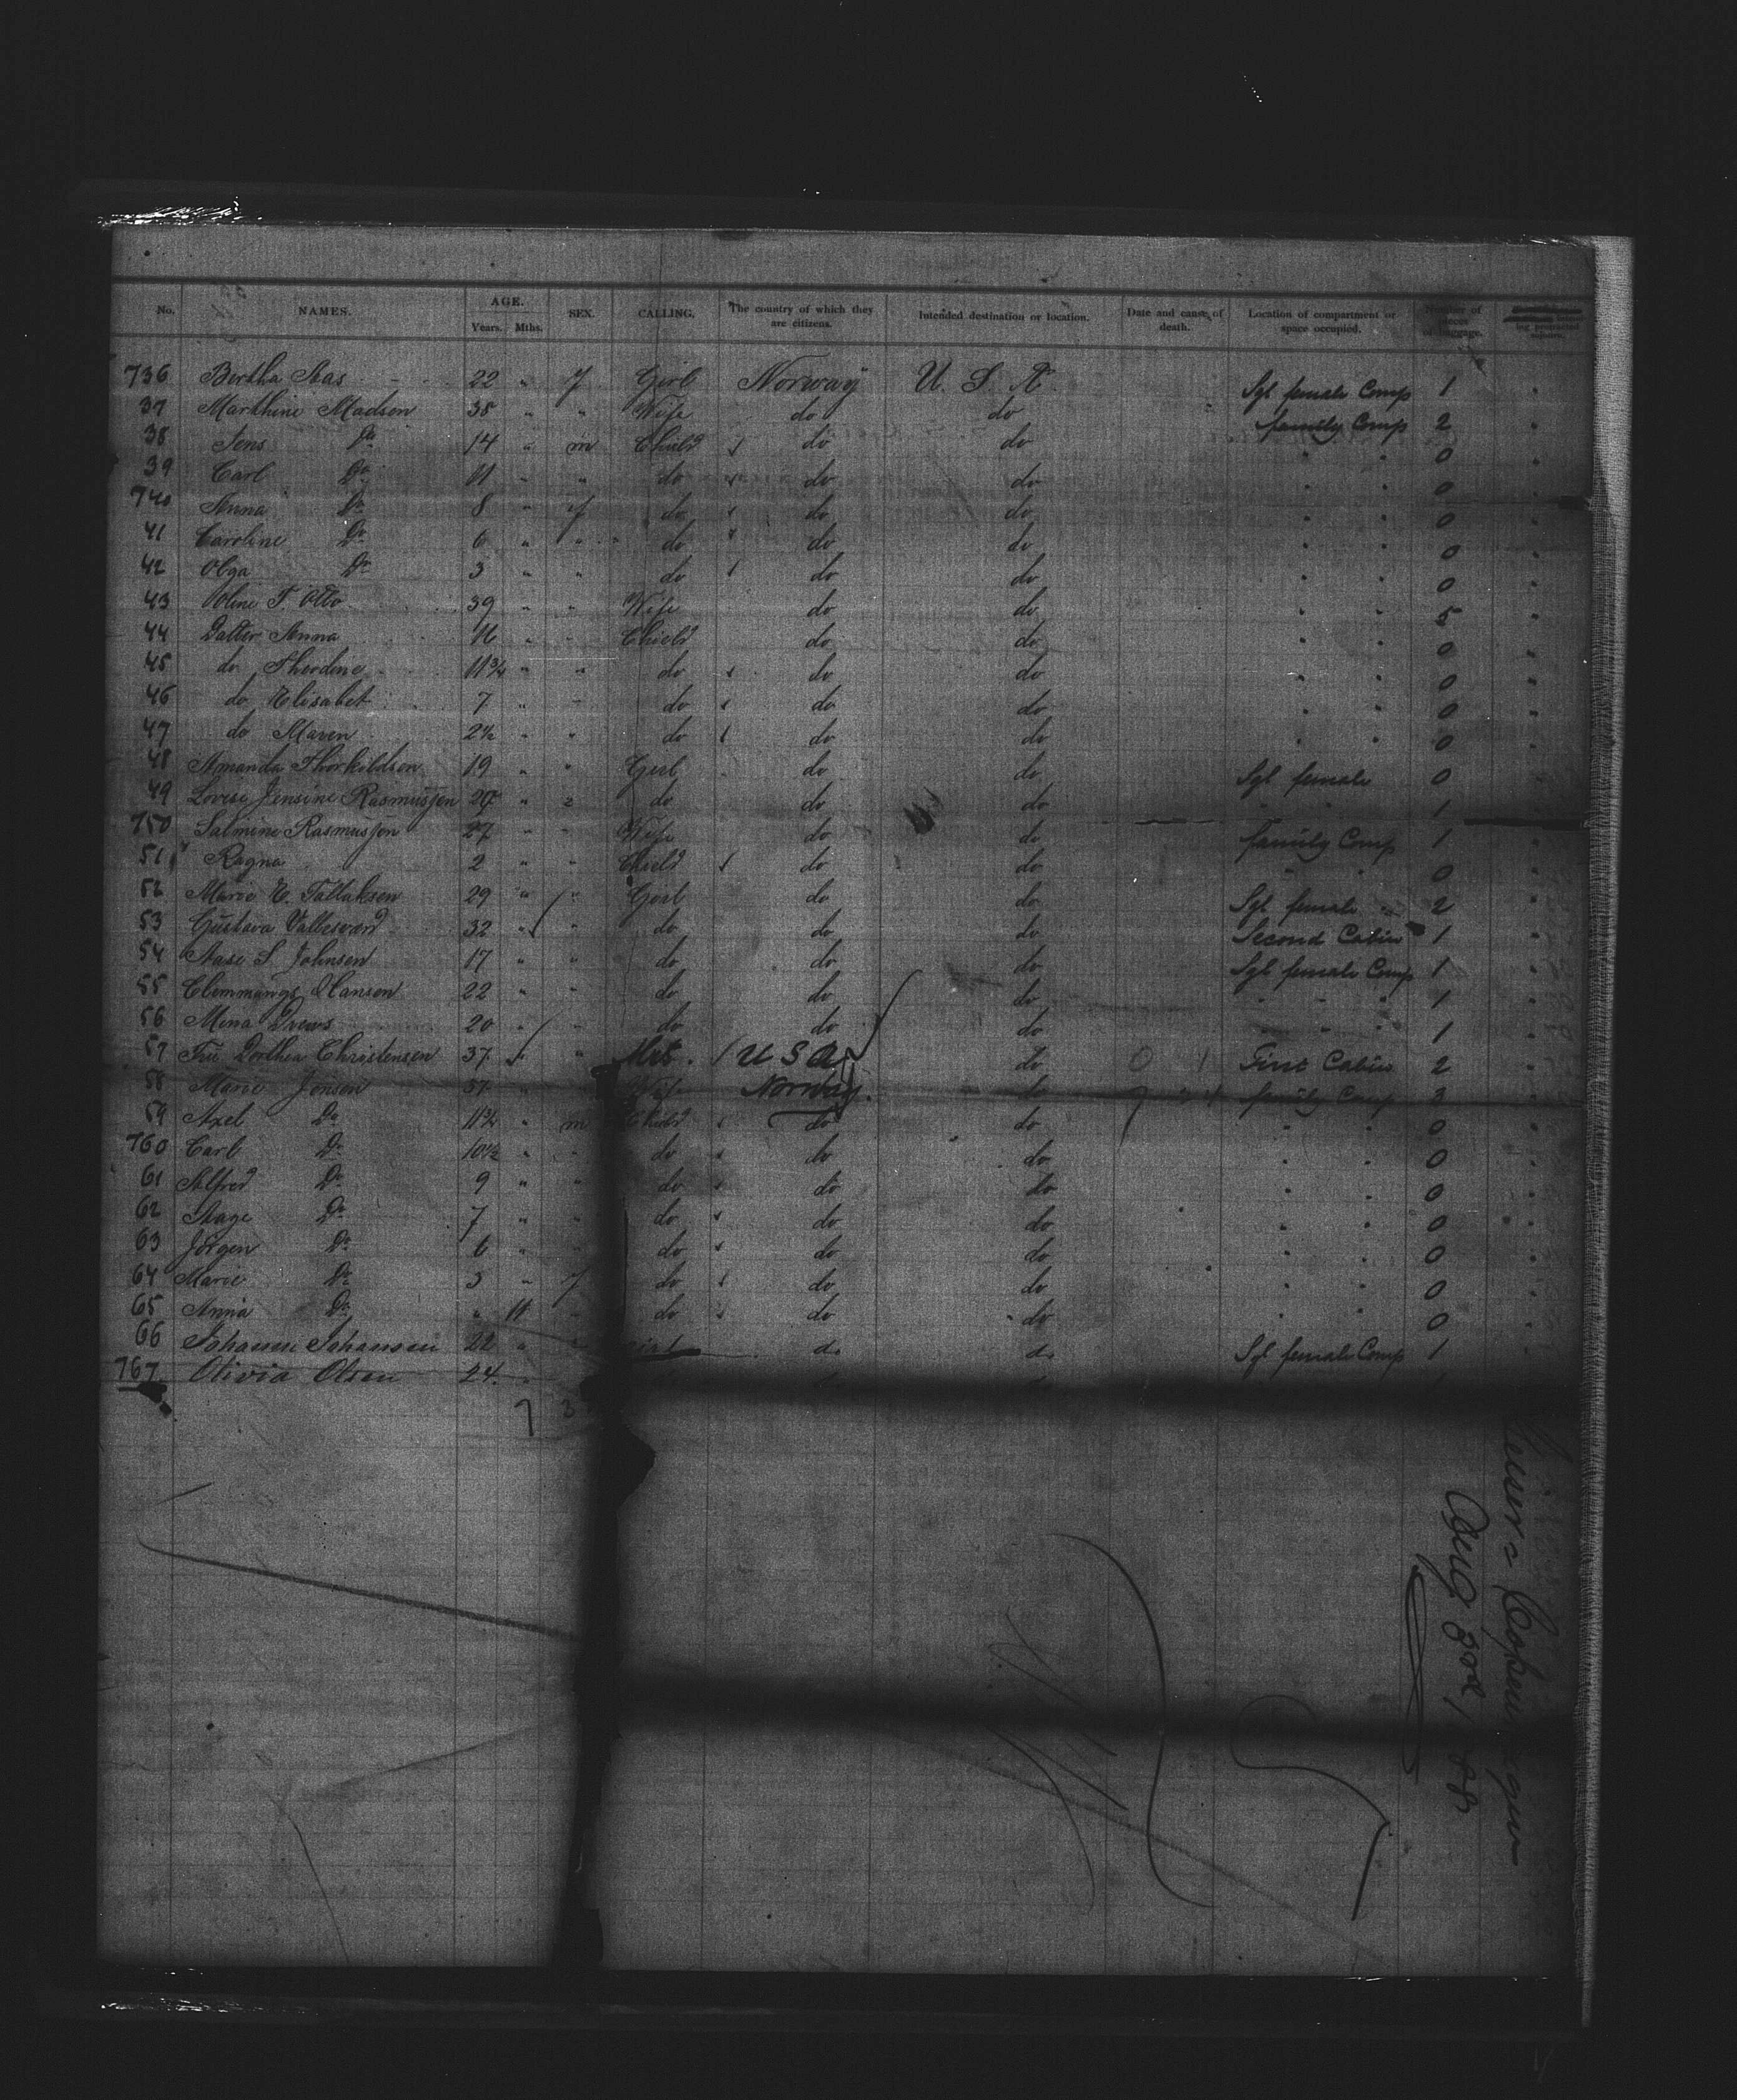 No. NAMES. AGE. Years. Mths. SEX. CALLING. The country of which they are citizens. Intended destination or location. Date and cause of death. Location of compartment or space occupied. Number of pieces of luggage.
736 Bertha Aas 22 " f Girl Norway U. S. A. Sgl female Comp 1 "
37 Marthine Madsen 38 " " Wife do do family Comp 2 "
38 Jens Do 14 " m Chield do do " " 0 "
39 Carl Do 11 " " do do do " " 0 "
740 Anna Do 8 " f do do do " " 0 "
41 Caroline Do 6 " " do do do " " 0 "
42 Olga Do 3 " " do do do " " 0 "
43 Oline T. Otto 39 " " Wife do do " " 5 "
44 Datter Anna 16 " " Chield do do " " 0 "
45 do Theodine 11 3/4 " " do do do " " 0 "
46 do Elisabet 7 " " do do do " " 0 "
47 do Maren 2 1/2 " " do do do " " 0 "
48 Amanda Thorkildsen 19 " " Girl do do Sgl female 0 "
49 Lovise Jensine Rasmussen 20 " " do do do " " 1 "
750 Salmine Rasmussen 27 " " Wife do do family Comp 1 "
51 " Ragna 2 " " Chield do do " " 0 "
52 Marie E. Tallaksen 29 " " Girl do do Sgl female " 2 "
53 Gustava 32 " " do do do Second Cabin 1 "
54 Aase S. Johnsen 17 " " do do do Sgl female Comp 1 "
55 Hansen 22 " " do do do " " " 1 "
56 Mina 20 " " do do do " " " 1 "
57 Fru Dorthea Christensen 37 " " Mrs. U S A do First Cabin 2 "
58 Marie Jensen 37 " Wife Norway do family Comp 3 "
59 Axel Do 11 3/4 " m Chield do do " " 0 "
760 Carl Do 10 1/2 " " do do do " " 0 "
61 Alfred Do 9 " " do do do " " 0 "
62 Aage Do 7 " " do do do " " 0 "
63 Jörgen Do 6 " " do do do " " 0 "
64 Marie Do 3 " f do do do " " 0 "
65 Anna Do " 11 " do do do " " 0 "
66 Johanne Johansen 22 " " do do Sgl female Comp 1
767 Olivia Olsen 24
7 3
Copenhagen
Aug